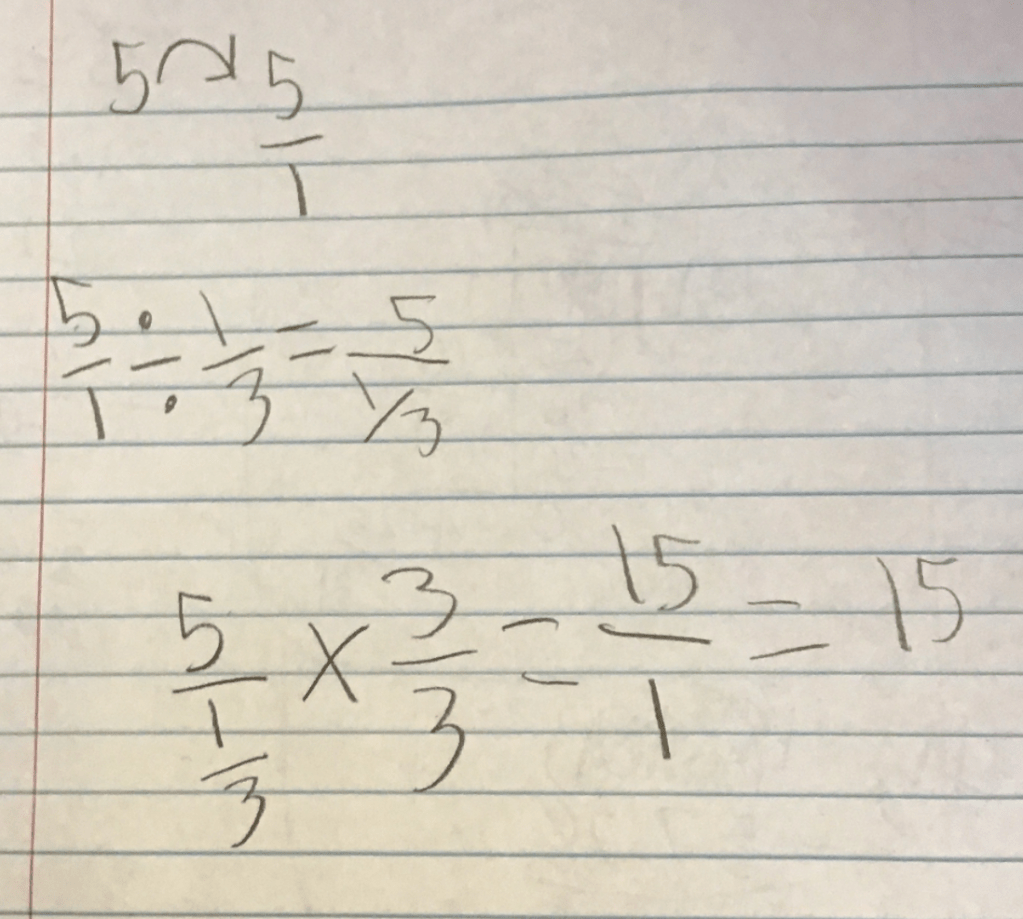 5 ↷ 5/1
5/1 ÷ 1/3 = 5/(1/3)
5/(1/3) × 3/3 = 15/1 = 15